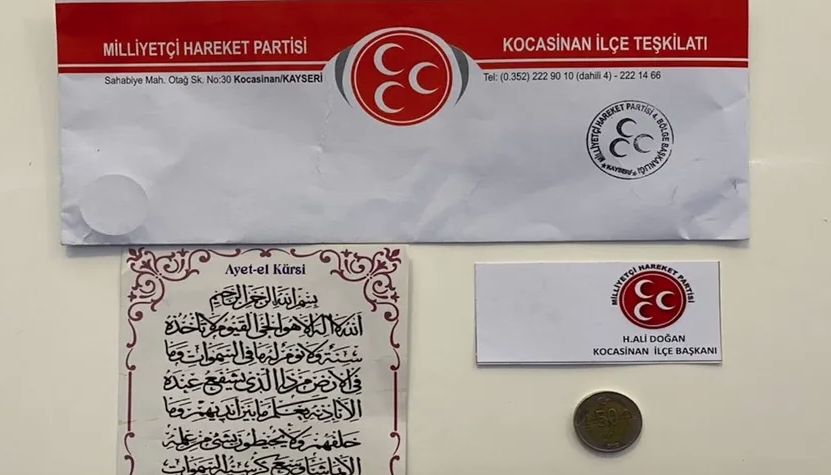 MİLLİYETÇİ HAREKET PARTİSİ
KOCASİNAN İLÇE TEŞKİLATI
Sahabiye Mah. Otağ Sk. No:30 Kocasinan/KAYSERİ
Tel: (0.352) 222 90 10 (dahili 4) - 222 14 66
MİLLİYETÇİ HAREKET PARTİSİ 4. BÖLGE BAŞKANLIĞI
KAYSERİ
Ayet-el Kürsi
بسم الله الرحمن الرحيم
الله لا اله الا هو الحي القيوم لا تأخذه
سنة ولا نوم له ما في السموات وما
في الارض من ذا الذي يشفع عنده
الا باذنه يعلم ما بين ايديهم وما
خلفهم ولا يحيطون بشئ من علمه
الا بما شاء وسع كرسيه السموات
MİLLİYETÇİ HAREKET PARTİSİ
H.ALİ DOĞAN
KOCASİNAN İLÇE BAŞKANI
50